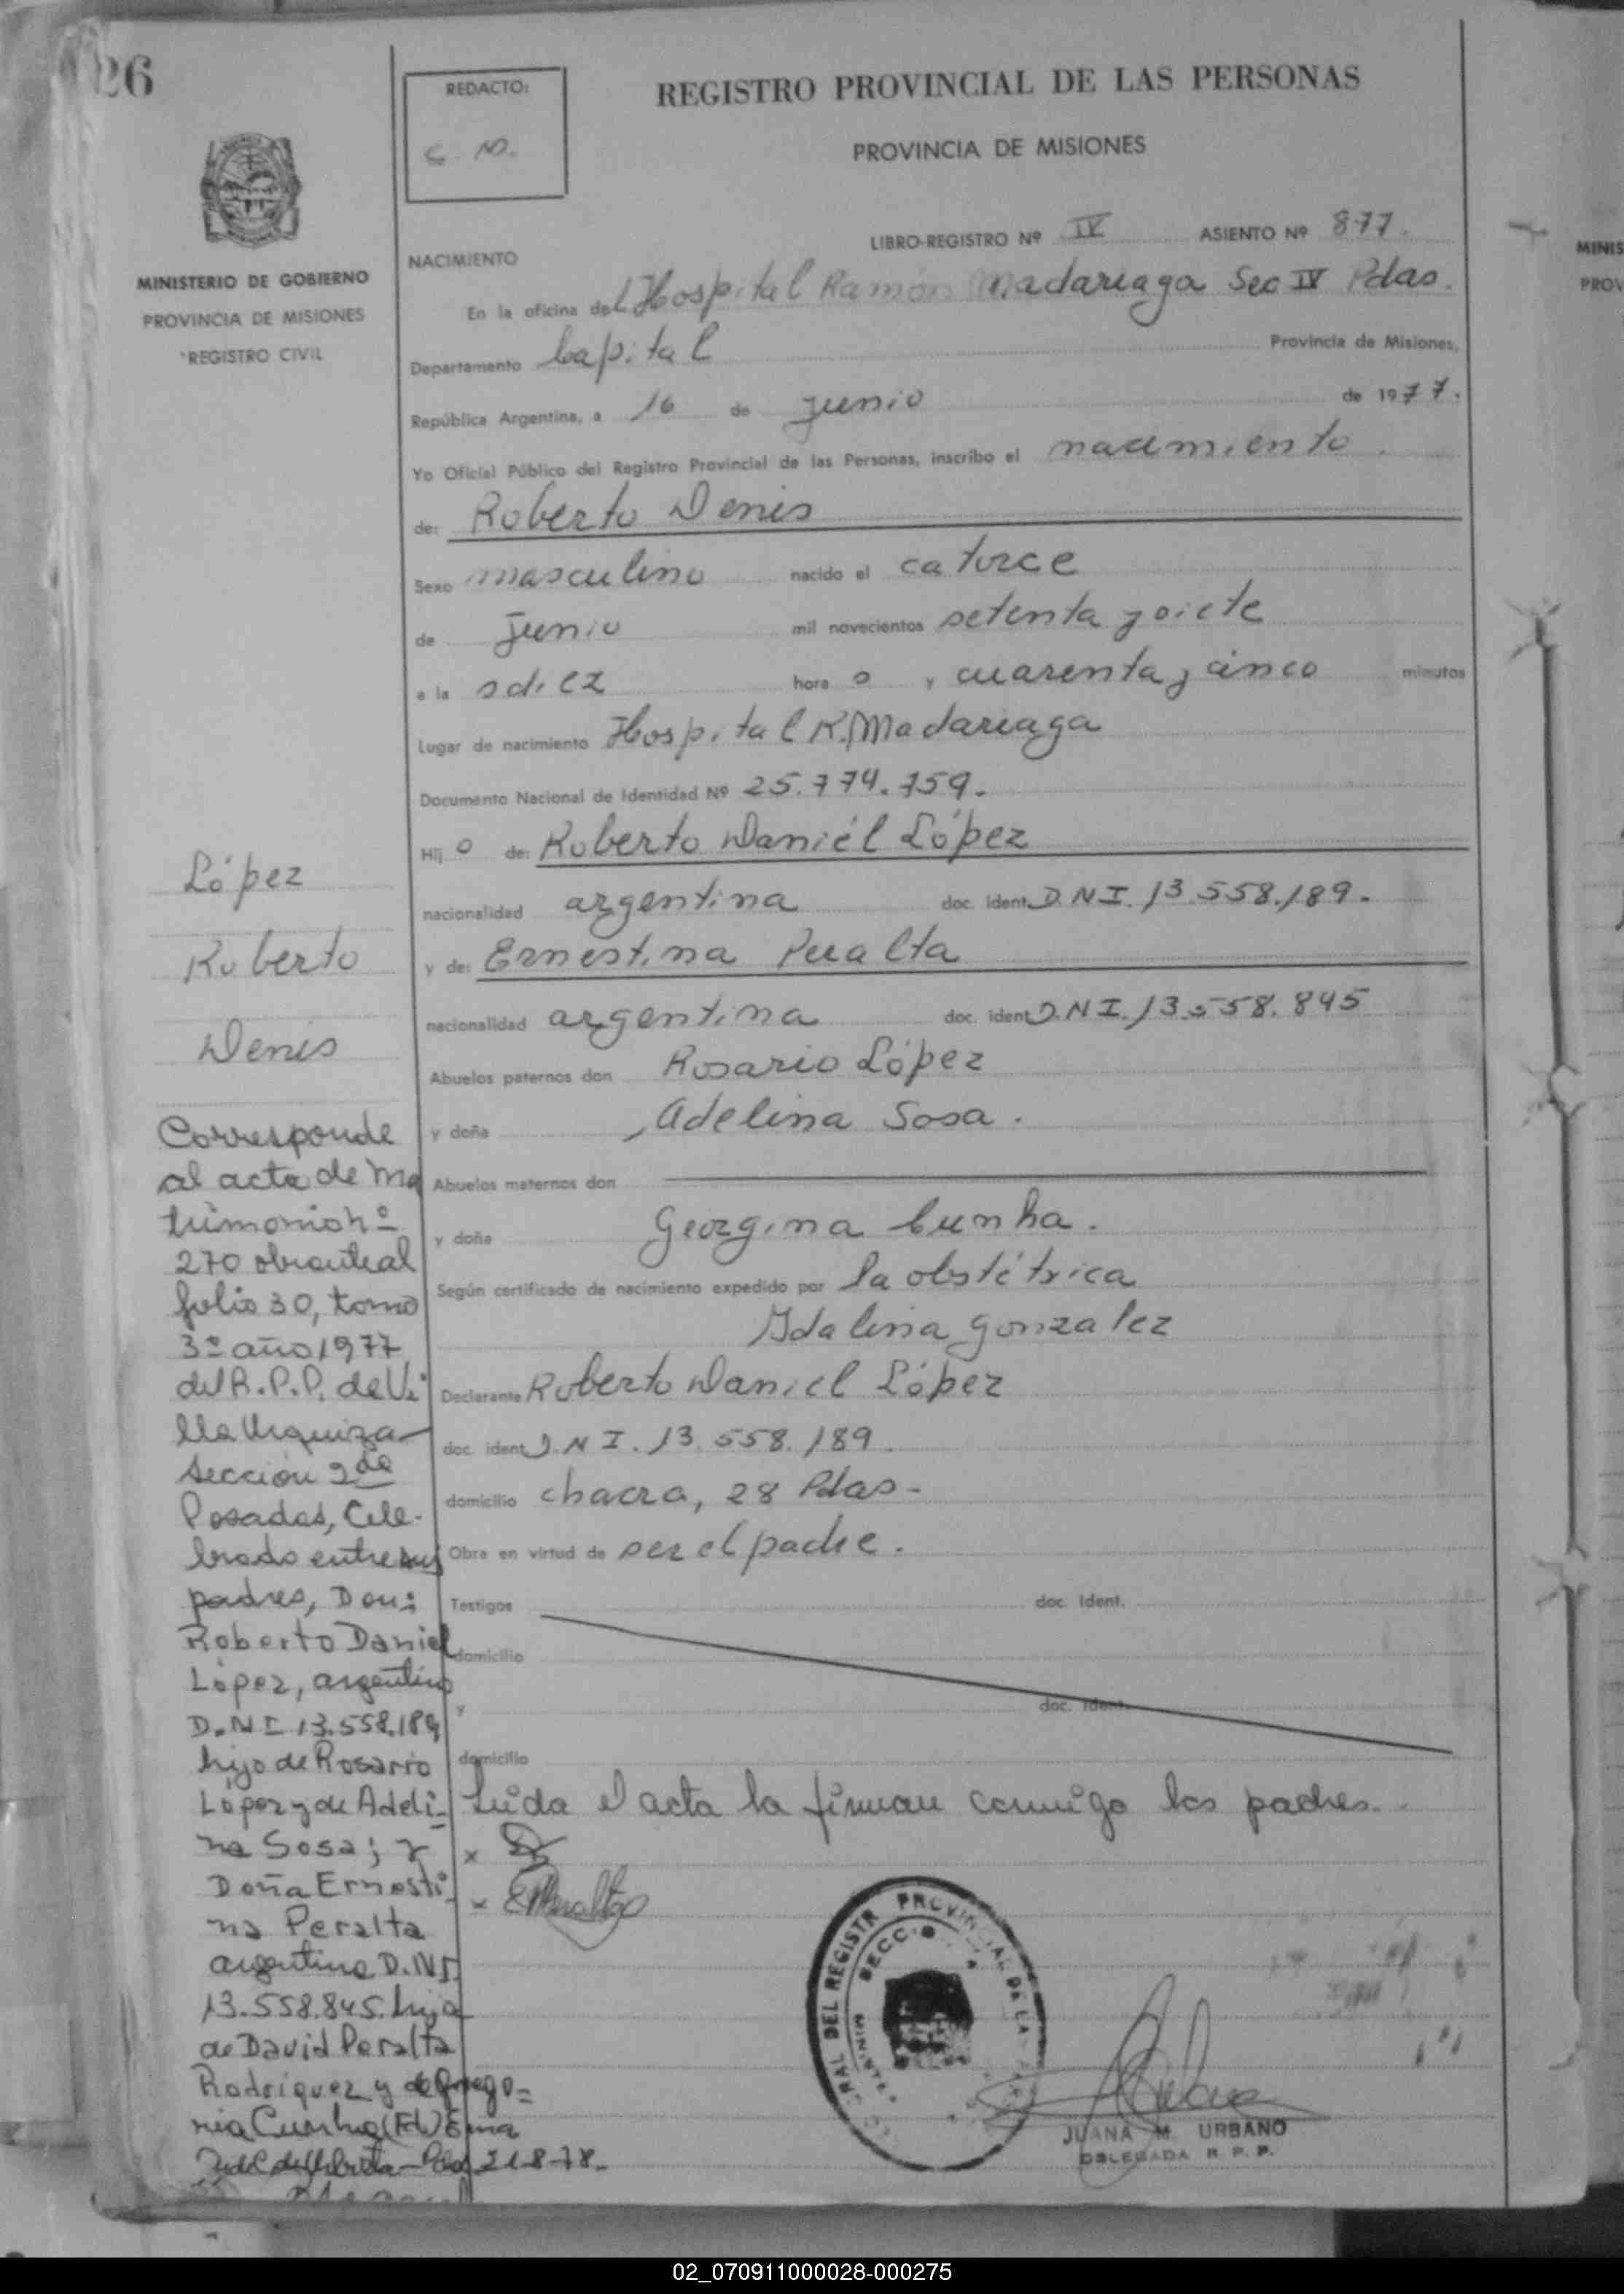 26
REDACTO:
REGISTRO PROVINCIAL DE LAS PERSONAS
PROVINCIA DE MISIONES
MINISTERIO DE GOBIERNO
PROVINCIA DE MISIONES
REGISTRO CIVIL
LIBRO-REGISTRO Nº IV ASIENTO Nº 877.
NACIMIENTO
En la oficina del Hospital Ramón Madariaga Sec IV Pdas.
Departamento Capital Provincia de Misiones,
República Argentina, a 16 de junio de 1977.
Yo Oficial Público del Registro Provincial de las Personas, inscribo el nacimiento.
de: Roberto Denis
Sexo masculino nacido el catorce
de junio mil novecientos setenta y siete
a la s diez hora s y cuarenta y cinco minutos
Lugar de nacimiento Hospital R. Madariaga
Documento Nacional de Identidad Nº 25.774.759.
Hij o de: Roberto Daniél López
nacionalidad argentina doc. ident. D.N.I. 13.558.189.
y de: Ernestina Peralta
nacionalidad argentina doc. ident. D.N.I. 13.558.845
Abuelos paternos don Rosario López
y doña Adelina Sosa.
Abuelos maternos don
y doña Georgina Cunha.
Según certificado de nacimiento expedido por la obstétrica
Idalina Gonzalez
Declarante Roberto Daniel López
doc. ident. D.N.I. 13.558.189.
domicilio chacra, 28 Pdas-
Obra en virtud de ser el padre.
Testigos doc. Ident.
domicilio
y doc. ident.
domicilio
Leida el acta la firman conmigo los padres.
x
x EPeralta
López
Roberto
Denis
Corresponde
al acta de Ma
trimonio nº
270 obrante al
folio 30, tomo
3º año 1977
del R.P.P. de Vi
lla Urquiza
Sección 2da
Posadas, Cele-
brado entre sus
padres, Don:
Roberto Daniel
López, argentino
D.N.I 13.558.189
hijo de Rosario
López y de Adeli-
na Sosa; y
Doña Ernesti-
na Peralta
argentina D.N.I.
13.558.845. hija
de David Peralta
Rodriguez y de Grego=
ria Cunha
21-8-78.
JUANA M. URBANO
DELEGADA R. P. P.
02_070911000028-000275